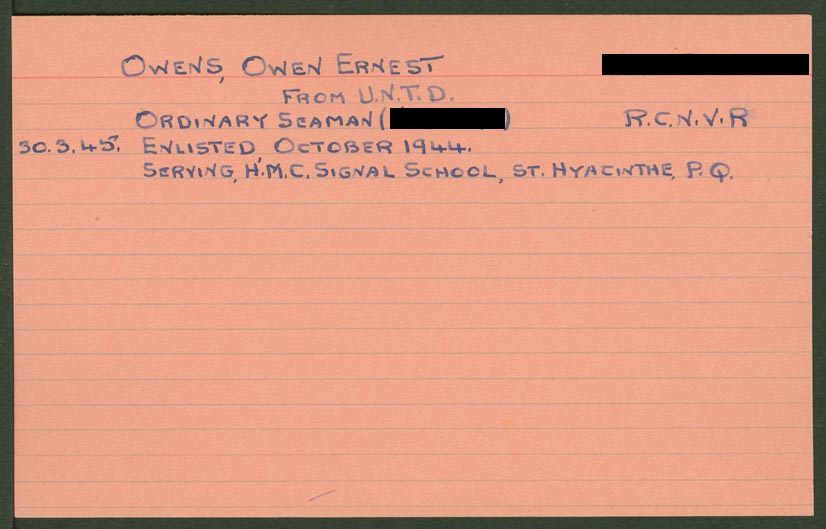 OWENS, OWEN ERNEST
FROM U.N.T.D.
ORDINARY SEAMAN ( ) R.C.N.V.R
30.3.45. ENLISTED OCTOBER 1944.
SERVING, H.M.C. SIGNAL SCHOOL, ST. HYACINTHE, P.Q.